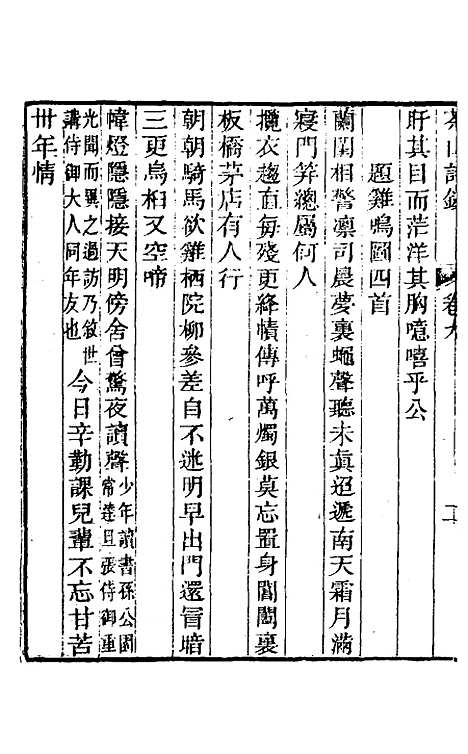 茶山詩鈔 卷九 十一
盱其目而茫洋其胸噫嘻乎公
題雞鳴圖四首
蘭閨相警凜司晨夢裏蠅聲聽未眞迢遞南天霜月滿
寢門笄總屬何人
攬衣趨直每殘更絳幘傳呼萬燭銀莫忘置身閶闔裏
板橋茅店有人行
朝朝騎馬欲雞栖院柳參差自不迷明早出門還冒暗
三更烏相又空啼
幃燈隱隱接天明傍舍曾驚夜讀聲少年讀書孫公園常達旦張侍御重
光聞而異之過訪乃敘世講侍御大人同年友也今日辛勤課兒輩不忘甘苦
卅年情